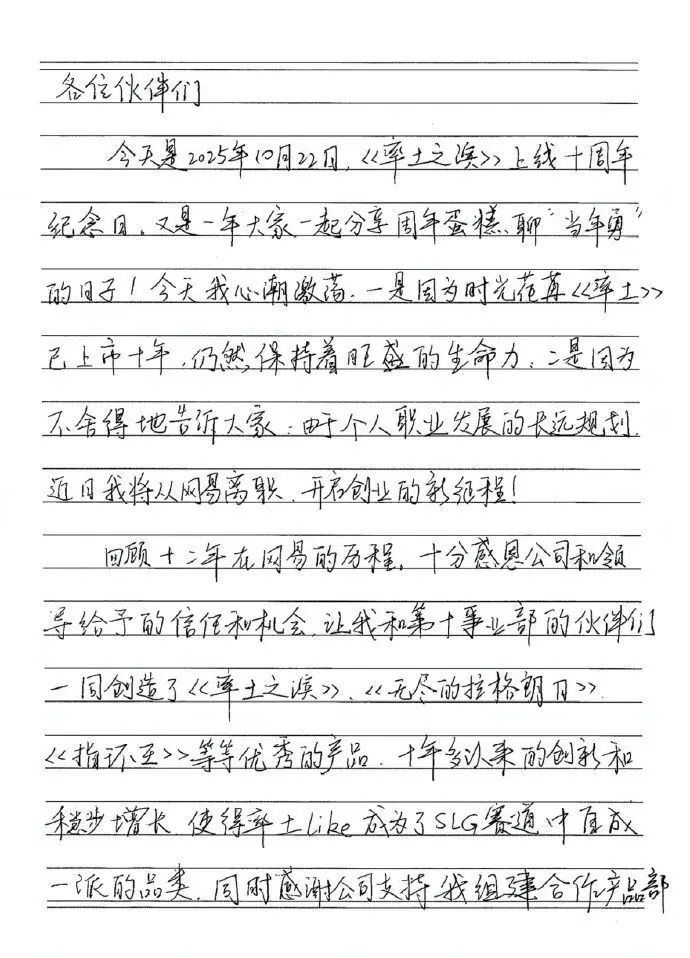 各位伙伴们
今天是2025年10月22日,《率土之滨》上线十周年
纪念日,又是一年大家一起分享周年蛋糕、聊“当年勇”
的日子!今天我心潮激荡,一是因为时光荏苒《率土》
已上市十年,仍然保持着旺盛的生命力;二是因为
不舍得地告诉大家:由于个人职业发展的长远规划,
近日我将从网易离职,开启创业的新征程!
回顾十二年在网易的历程,十分感恩公司和领
导给予的信任和机会,让我和第十事业部的伙伴们
一同创造了《率土之滨》、《无尽的拉格朗日》、
《指环王》等等优秀的产品,十年多以来的创新和
稳步增长,使得率土like成为了SLG赛道中自成
一派的品类,同时感谢公司支持我组建合作产品部